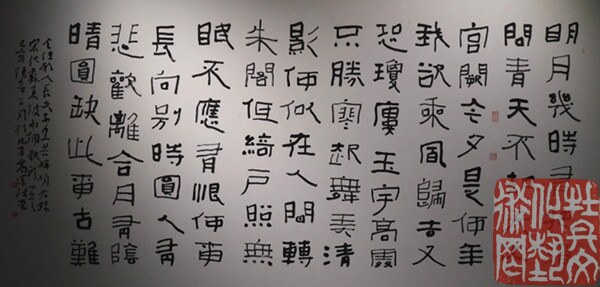 明月幾時有
問青天不
宮闕今夕是何年
我欲乘風歸去又
恐瓊樓玉宇高處
不勝寒起舞弄清
影何似在人間轉
朱閣低綺戶照無
眠不應有恨何事
長向別時圓人有
悲歡離合月有陰
晴圓缺此事古難
全但願人長久千里共嬋娟